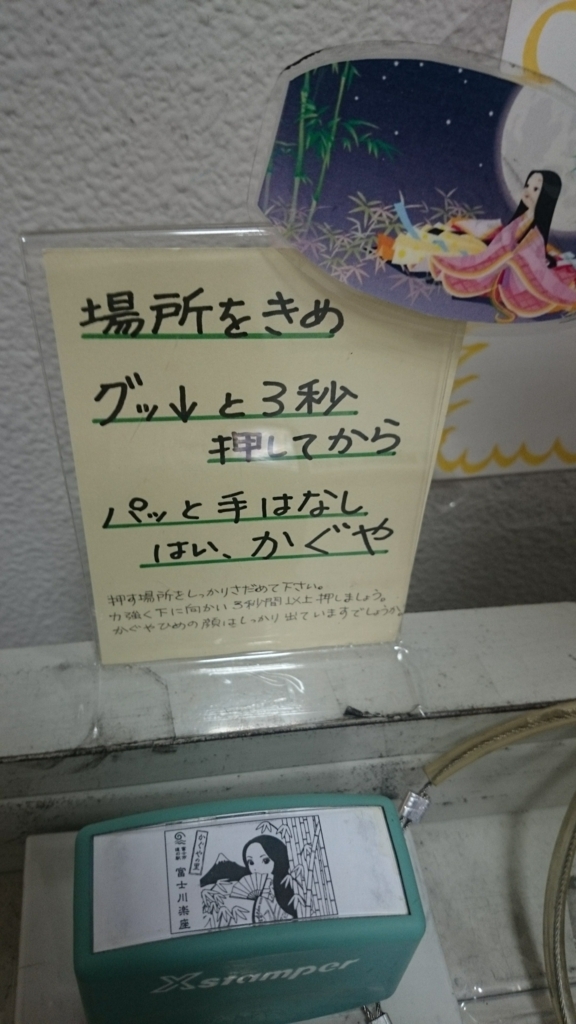 場所をきめ
グッ↓と3秒
押してから
パッと手はなし
はい、かぐや
押す場所をしっかりさだめて下さい。
力強く下に向かい3秒間以上押しましょう。
かぐやひめの顔はしっかり出ていますでしょうか
かぐやの里
富士川楽座
Xstamper